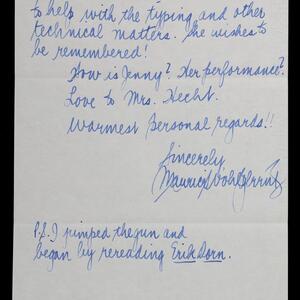 to help with the typing and other
technical matters. She wishes to
be remembered!
How is Jenny? Her performance?
Love to Mrs. Hecht.
Warmest personal regards!!
Sincerely
Maurice
P.S. I jumped the gun and
began by rereading Erik Dorn.